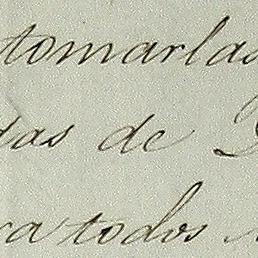 tomarlas
das de
ra todos